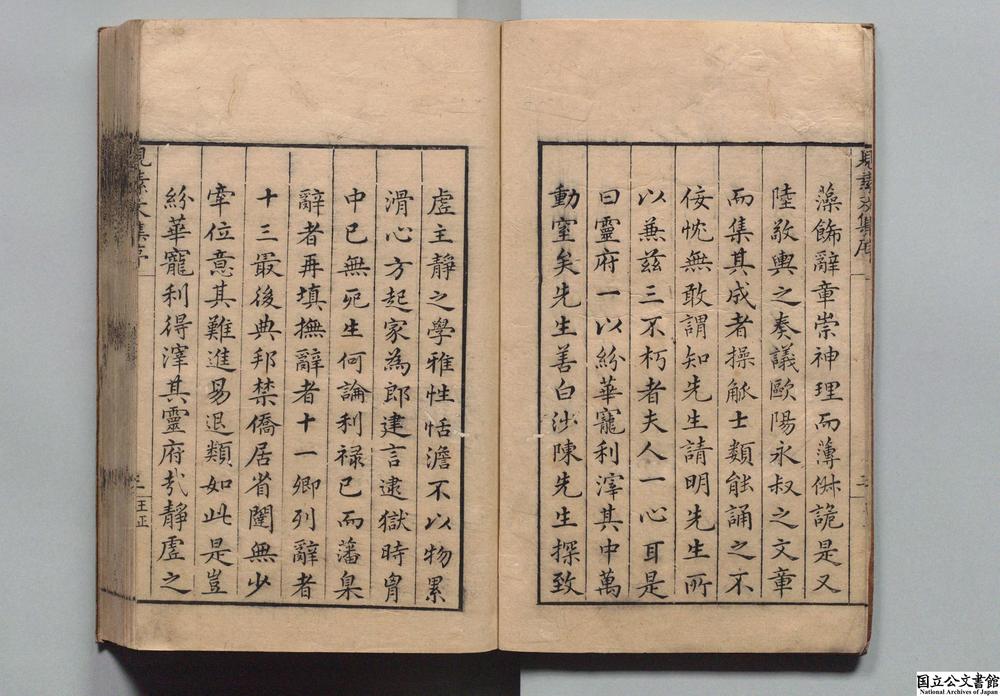 藻飾辭章崇神理而薄俶詭是又
陸敬輿之奏議歐陽永叔之文章
而集其成者操觚士類能誦之不
佞忱無敢謂知先生請明先生所
以兼茲三不朽者夫人一心耳是
曰靈府一以紛華寵利滓其中萬
動窒矣先生善白沙陳先生探致
虛主靜之學雅性恬澹不以物累
滑心方起家為郎建言逮獄時胷
中已無死生何論利祿已而藩臬
辭者再填撫辭者十一卿列辭者
十三最後典邦禁僑居省闥無少
牽位意其難進易退類如此是豈
紛華寵利得滓其靈府哉靜虛之
見素文集序
三
王正
国立公文書館
National Archives of Japan